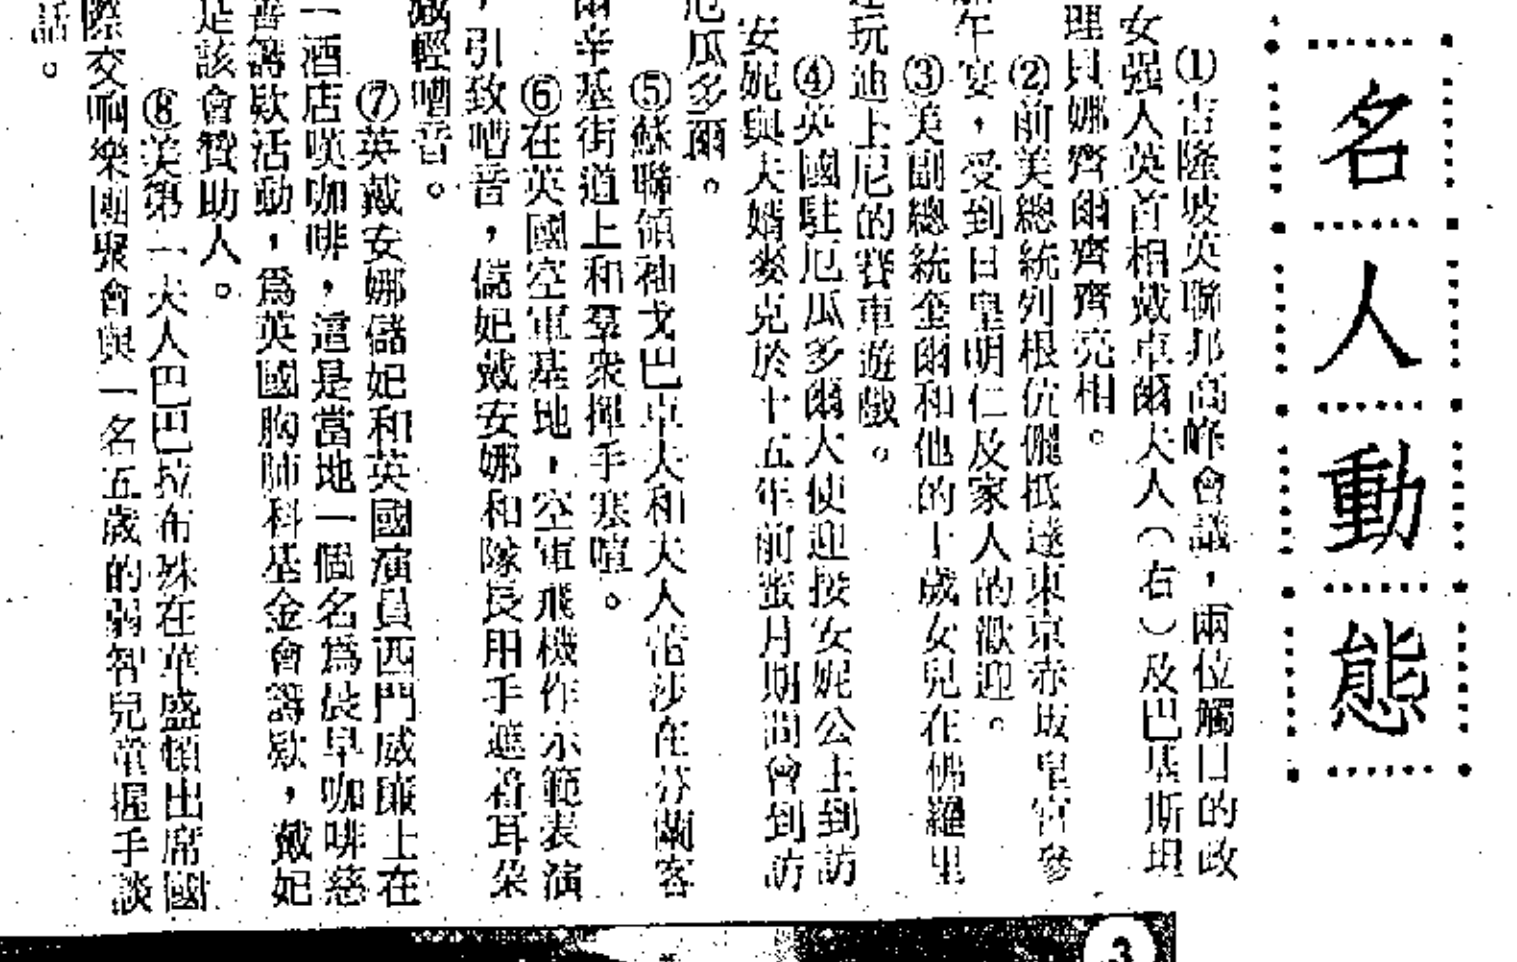 名人動態
①吉隆坡英聯邦高峰會議，兩位觸目的政
女强人英首相戴卓爾夫人（右）及巴基斯坦
理貝娜齊爾齊齊亮相。
②前美總統列根伉儷抵達東京赤坂皇宮參
午宴，受到日皇明仁及家人的歡迎。
③美副總統奎爾和他的十歲女兒在佛羅里
玩迪士尼的賽車遊戲。
④英國駐厄瓜多爾大使迎接安妮公主到訪
安妮與夫婿麥克於十五年前蜜月期間曾到訪
厄瓜多爾。
⑤蘇聯領袖戈巴卓夫和夫人雷莎在芬蘭客
爾辛基街道上和羣衆揮手寒喧。
⑥在英國空軍基地，空軍飛機作示範表演
，引致嘈音，儲妃戴安娜和隊長用手遮着耳朵
減輕嘈音。
⑦英戴安娜儲妃和英國演員西門威廉上在
一酒店嘆咖啡，這是當地一個名爲晨早咖啡慈
善籌欵活動，爲英國胸肺科基金會籌欵，戴妃
是該會贊助人。
⑧美第一夫人巴巴拉布殊在華盛頓出席國
際交响樂團聚會與一名五歲的弱智兒童握手談
話。
3